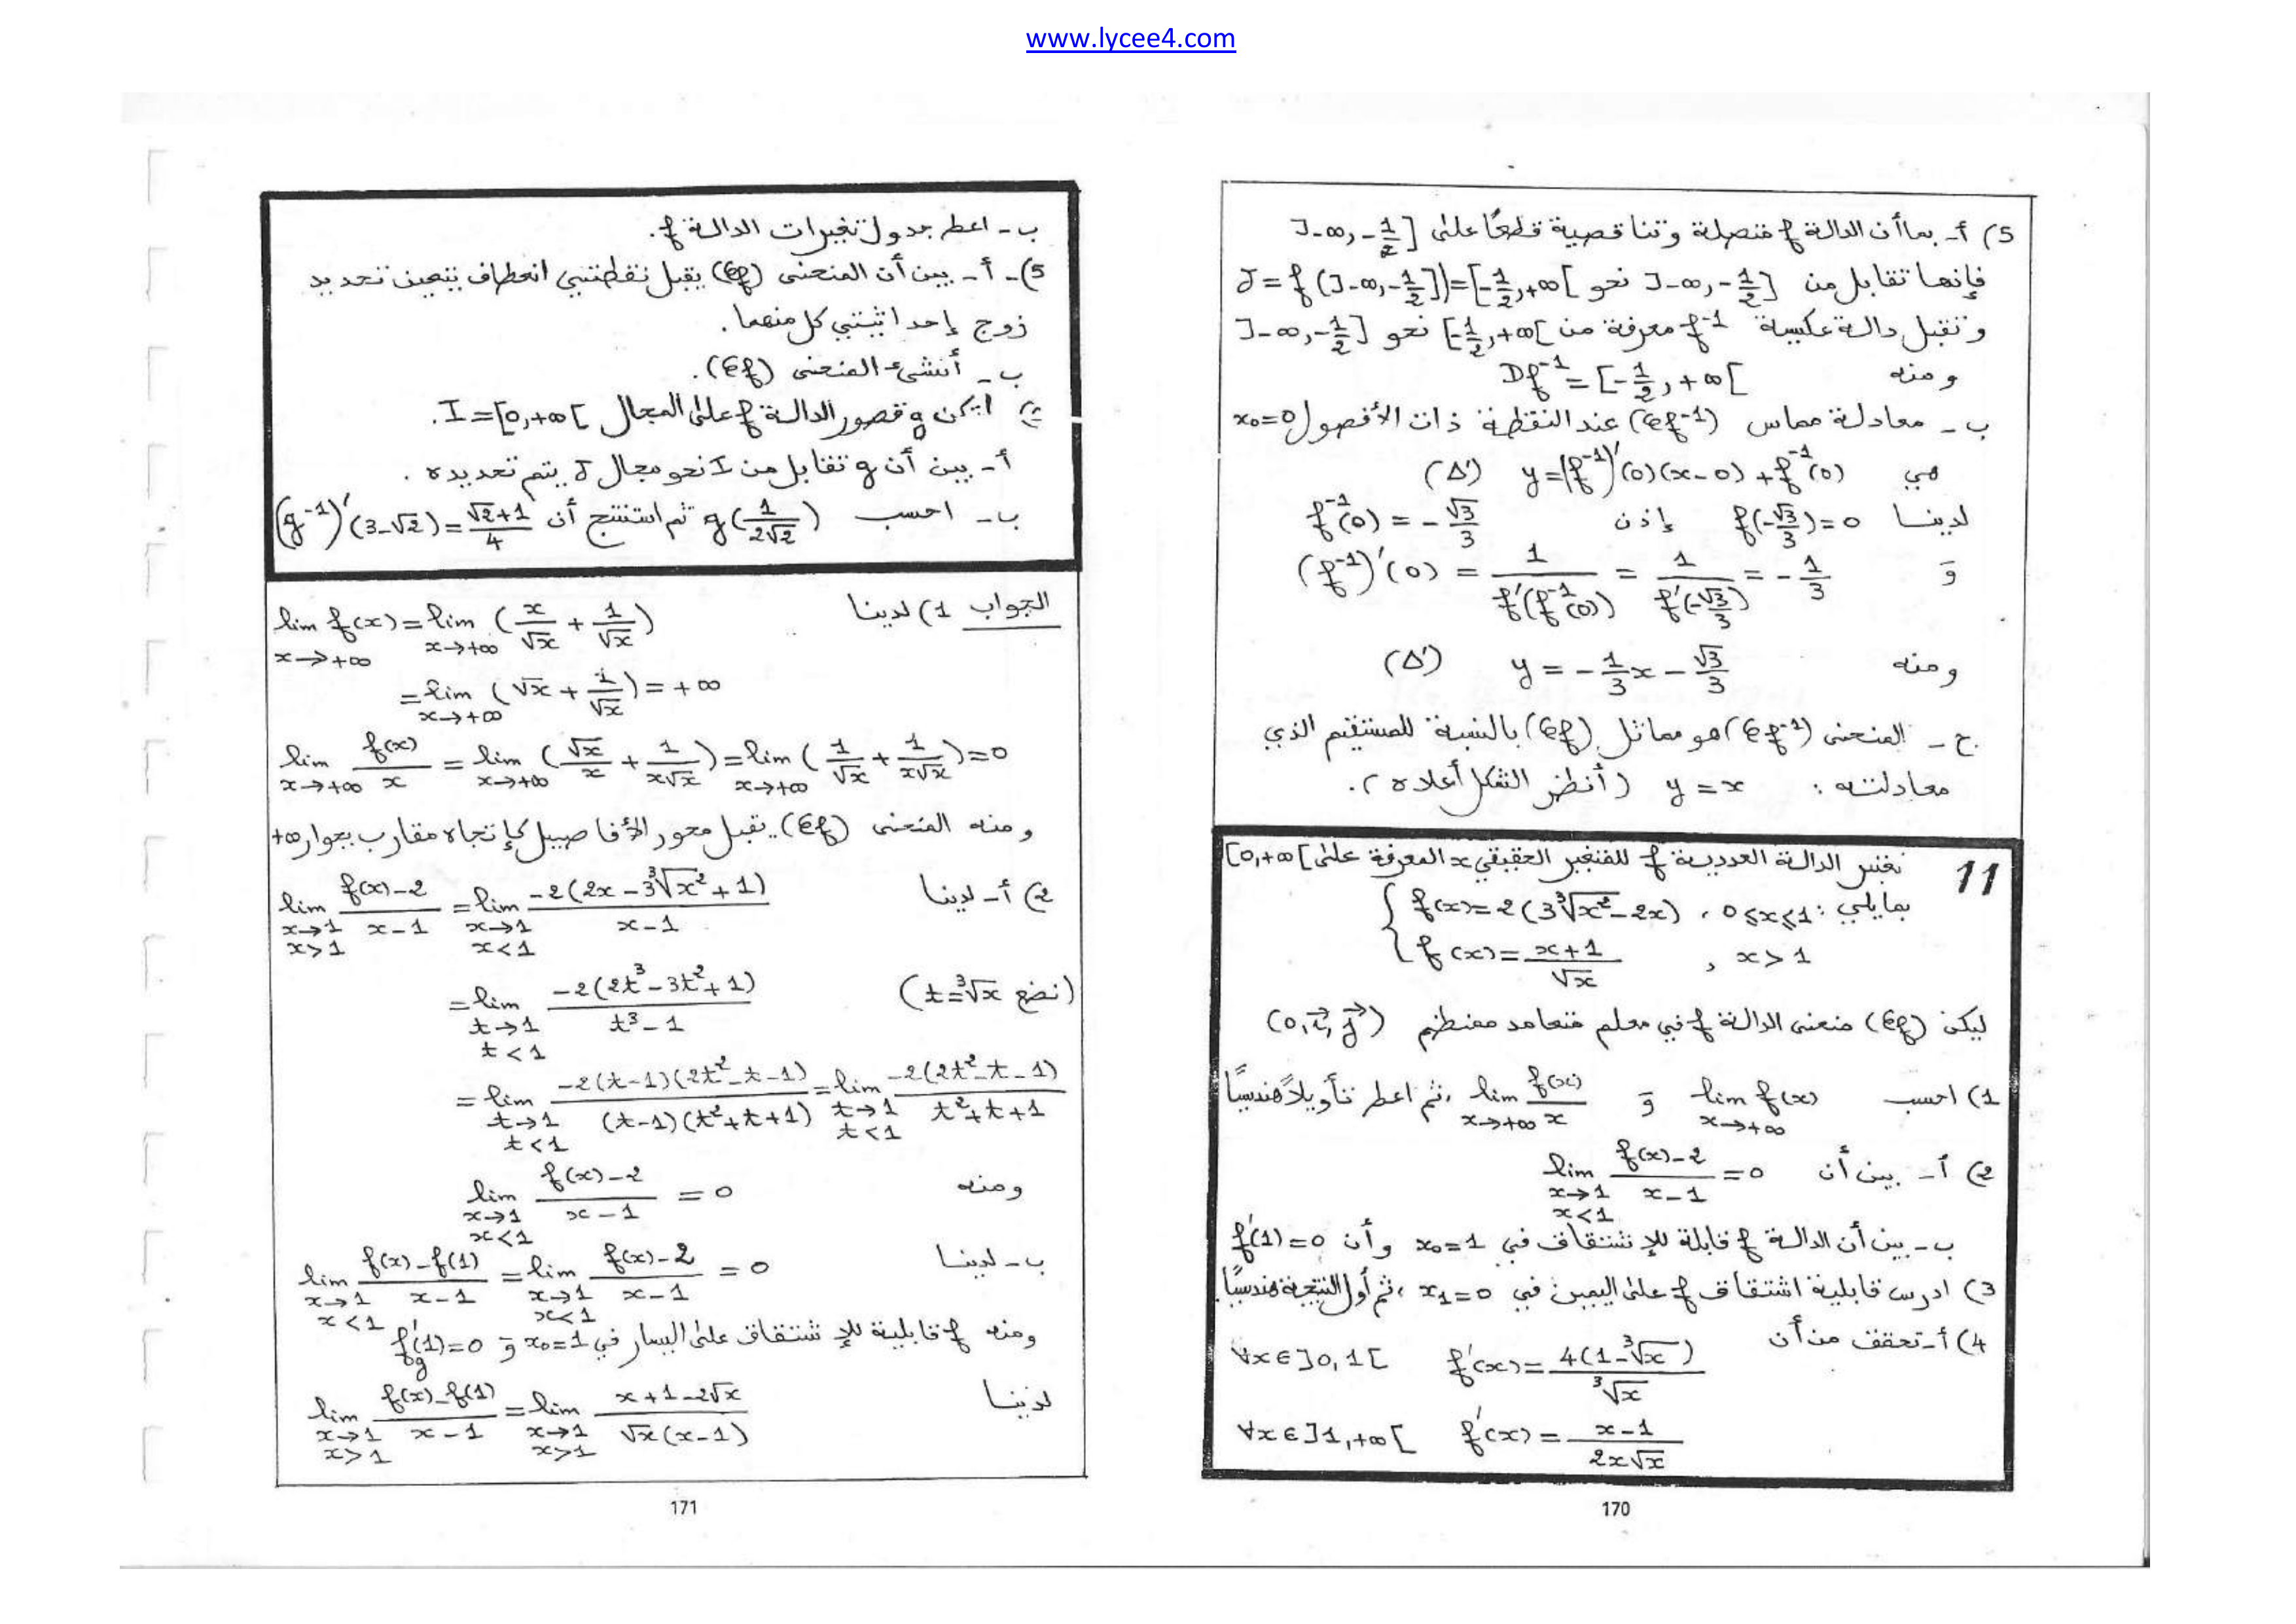 www.lycee4.com
5) أ- بما أن الدالة f متصلة وتناقصية قطعًا على ]-∞,-1/2]
فإنها تقابل من ]-∞,-1/2] نحو J=f(]-∞,-1/2])=[-1/2,+∞[
وتقبل دالة عكسية f⁻¹ معرفة من [-1/2,+∞[ نحو ]-∞,-1/2]
ومنه Df⁻¹=[-1/2,+∞[
ب- معادلة مماس (Cf⁻¹) عند النقطة ذات الأفصول x₀=0
هي y=(f⁻¹)'(0)(x-0)+f⁻¹(0) (Δ')
لدينا f(-√3/3)=0 إذن f⁻¹(0)=-√3/3
و (f⁻¹)'(0)=1/f'(f⁻¹(0))=1/f'(-√3/3)=-1/3
ومنه y=-1/3x-√3/3 (Δ')
ج- المنحنى (Cf⁻¹) هو مماثل (Cf) بالنسبة للمستقيم الذي
معادلته : y=x (أنظر الشكل أعلاه).
11 نعتبر الدالة العددية f للمتغير الحقيقي x المعرفة على [0,+∞[
بمايلي: { f(x)=2(3∛x²-2x) , 0≤x≤1
f(x)=(x+1)/√x , x>1
ليكن (Cf) منحنى الدالة f في معلم متعامد ممنظم (O,i⃗,j⃗)
1) احسب lim f(x) x→+∞ و lim f(x)/x x→+∞ ، ثم اعط تأويلاً هندسيًا
2) أ- بين أن lim (f(x)-2)/(x-1)=0 x→1 x<1
ب- بين أن الدالة f قابلة للإشتقاق في x₀=1 وأن f'(1)=0
3) ادرس قابلية اشتقاق f على اليمين في x₁=0 ، ثم أول النتيجة هندسيًا.
4) أ- تحقق من أن f'(x)=4(1-∛x)/∛x ∀x∈]0,1[
f'(x)=(x-1)/(2x√x) ∀x∈]1,+∞[
170
ب- اعط جدول تغيرات الدالة f.
5)- أ- بين أن المنحنى (Cf) يقبل نقطتي انعطاف يتعين تحديد
زوج إحداثيتي كل منهما.
ب- أنشئ المنحنى (Cf).
ليكن g قصور الدالة f على المجال I=[0,+∞[.
أ- بين أن g تقابل من I نحو مجال J يتم تحديده.
ب- احسب g(1/(2√2)) ثم استنتج أن (g⁻¹)'(3-√2)=(√2+1)/4
الجواب 1) لدينا lim f(x)=lim (x/√x+1/√x) x→+∞ x→+∞
=lim (√x+1/√x)=+∞ x→+∞
lim f(x)/x=lim (√x/x+1/(x√x))=lim (1/√x+1/(x√x))=0 x→+∞ x→+∞ x→+∞
ومنه المنحنى (Cf) يقبل محور الأفاصيل كإتجاه مقارب بجوار +∞
2) أ- لدينا lim (f(x)-2)/(x-1)=lim -2(2x-3∛x²+1)/(x-1) x→1 x>1 x→1 x<1
=lim -2(2t³-3t²+1)/(t³-1) t→1 t<1 (نضع t=∛x)
=lim -2(t-1)(2t²-t-1)/((t-1)(t²+t+1))=lim -2(2t²-t-1)/(t²+t+1) t→1 t<1 t→1 t<1
ومنه lim (f(x)-2)/(x-1)=0 x→1 x<1
ب- لدينا lim (f(x)-f(1))/(x-1)=lim (f(x)-2)/(x-1)=0 x→1 x<1 x→1 x<1
ومنه f قابلية للإشتقاق على اليسار في x₀=1 و f'g(1)=0
لدينا lim (f(x)-f(1))/(x-1)=lim (x+1-2√x)/(√x(x-1)) x→1 x>1 x→1 x>1
171